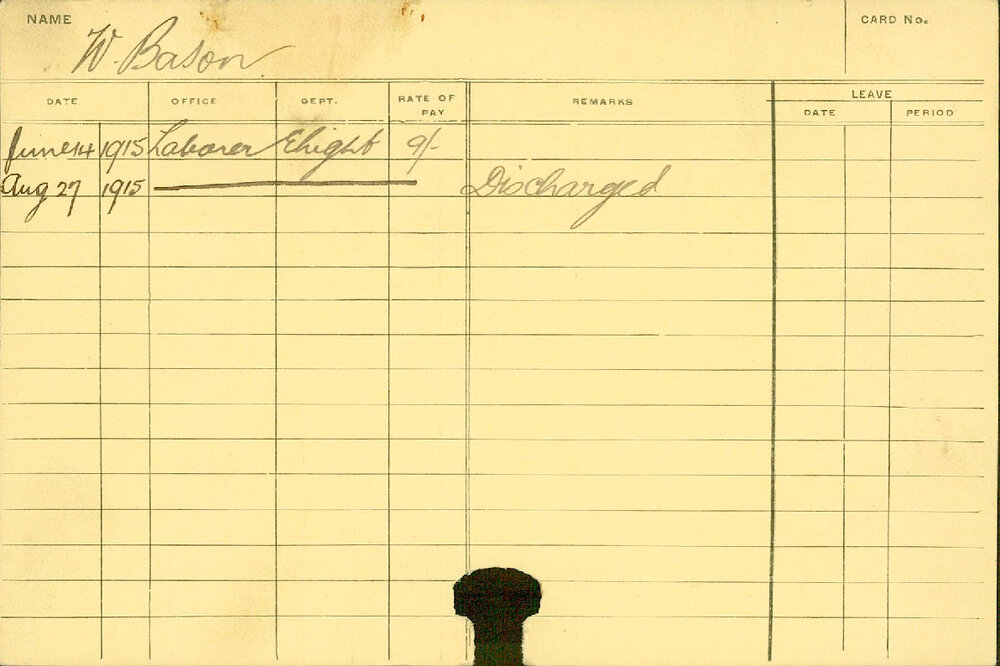 NAME CARD No.
W. Bason
DATE OFFICE DEPT. RATE OF PAY REMARKS LEAVE
DATE PERIOD
June 14 1915 Laborer Elright 9/-
Aug 27 1915 Discharged